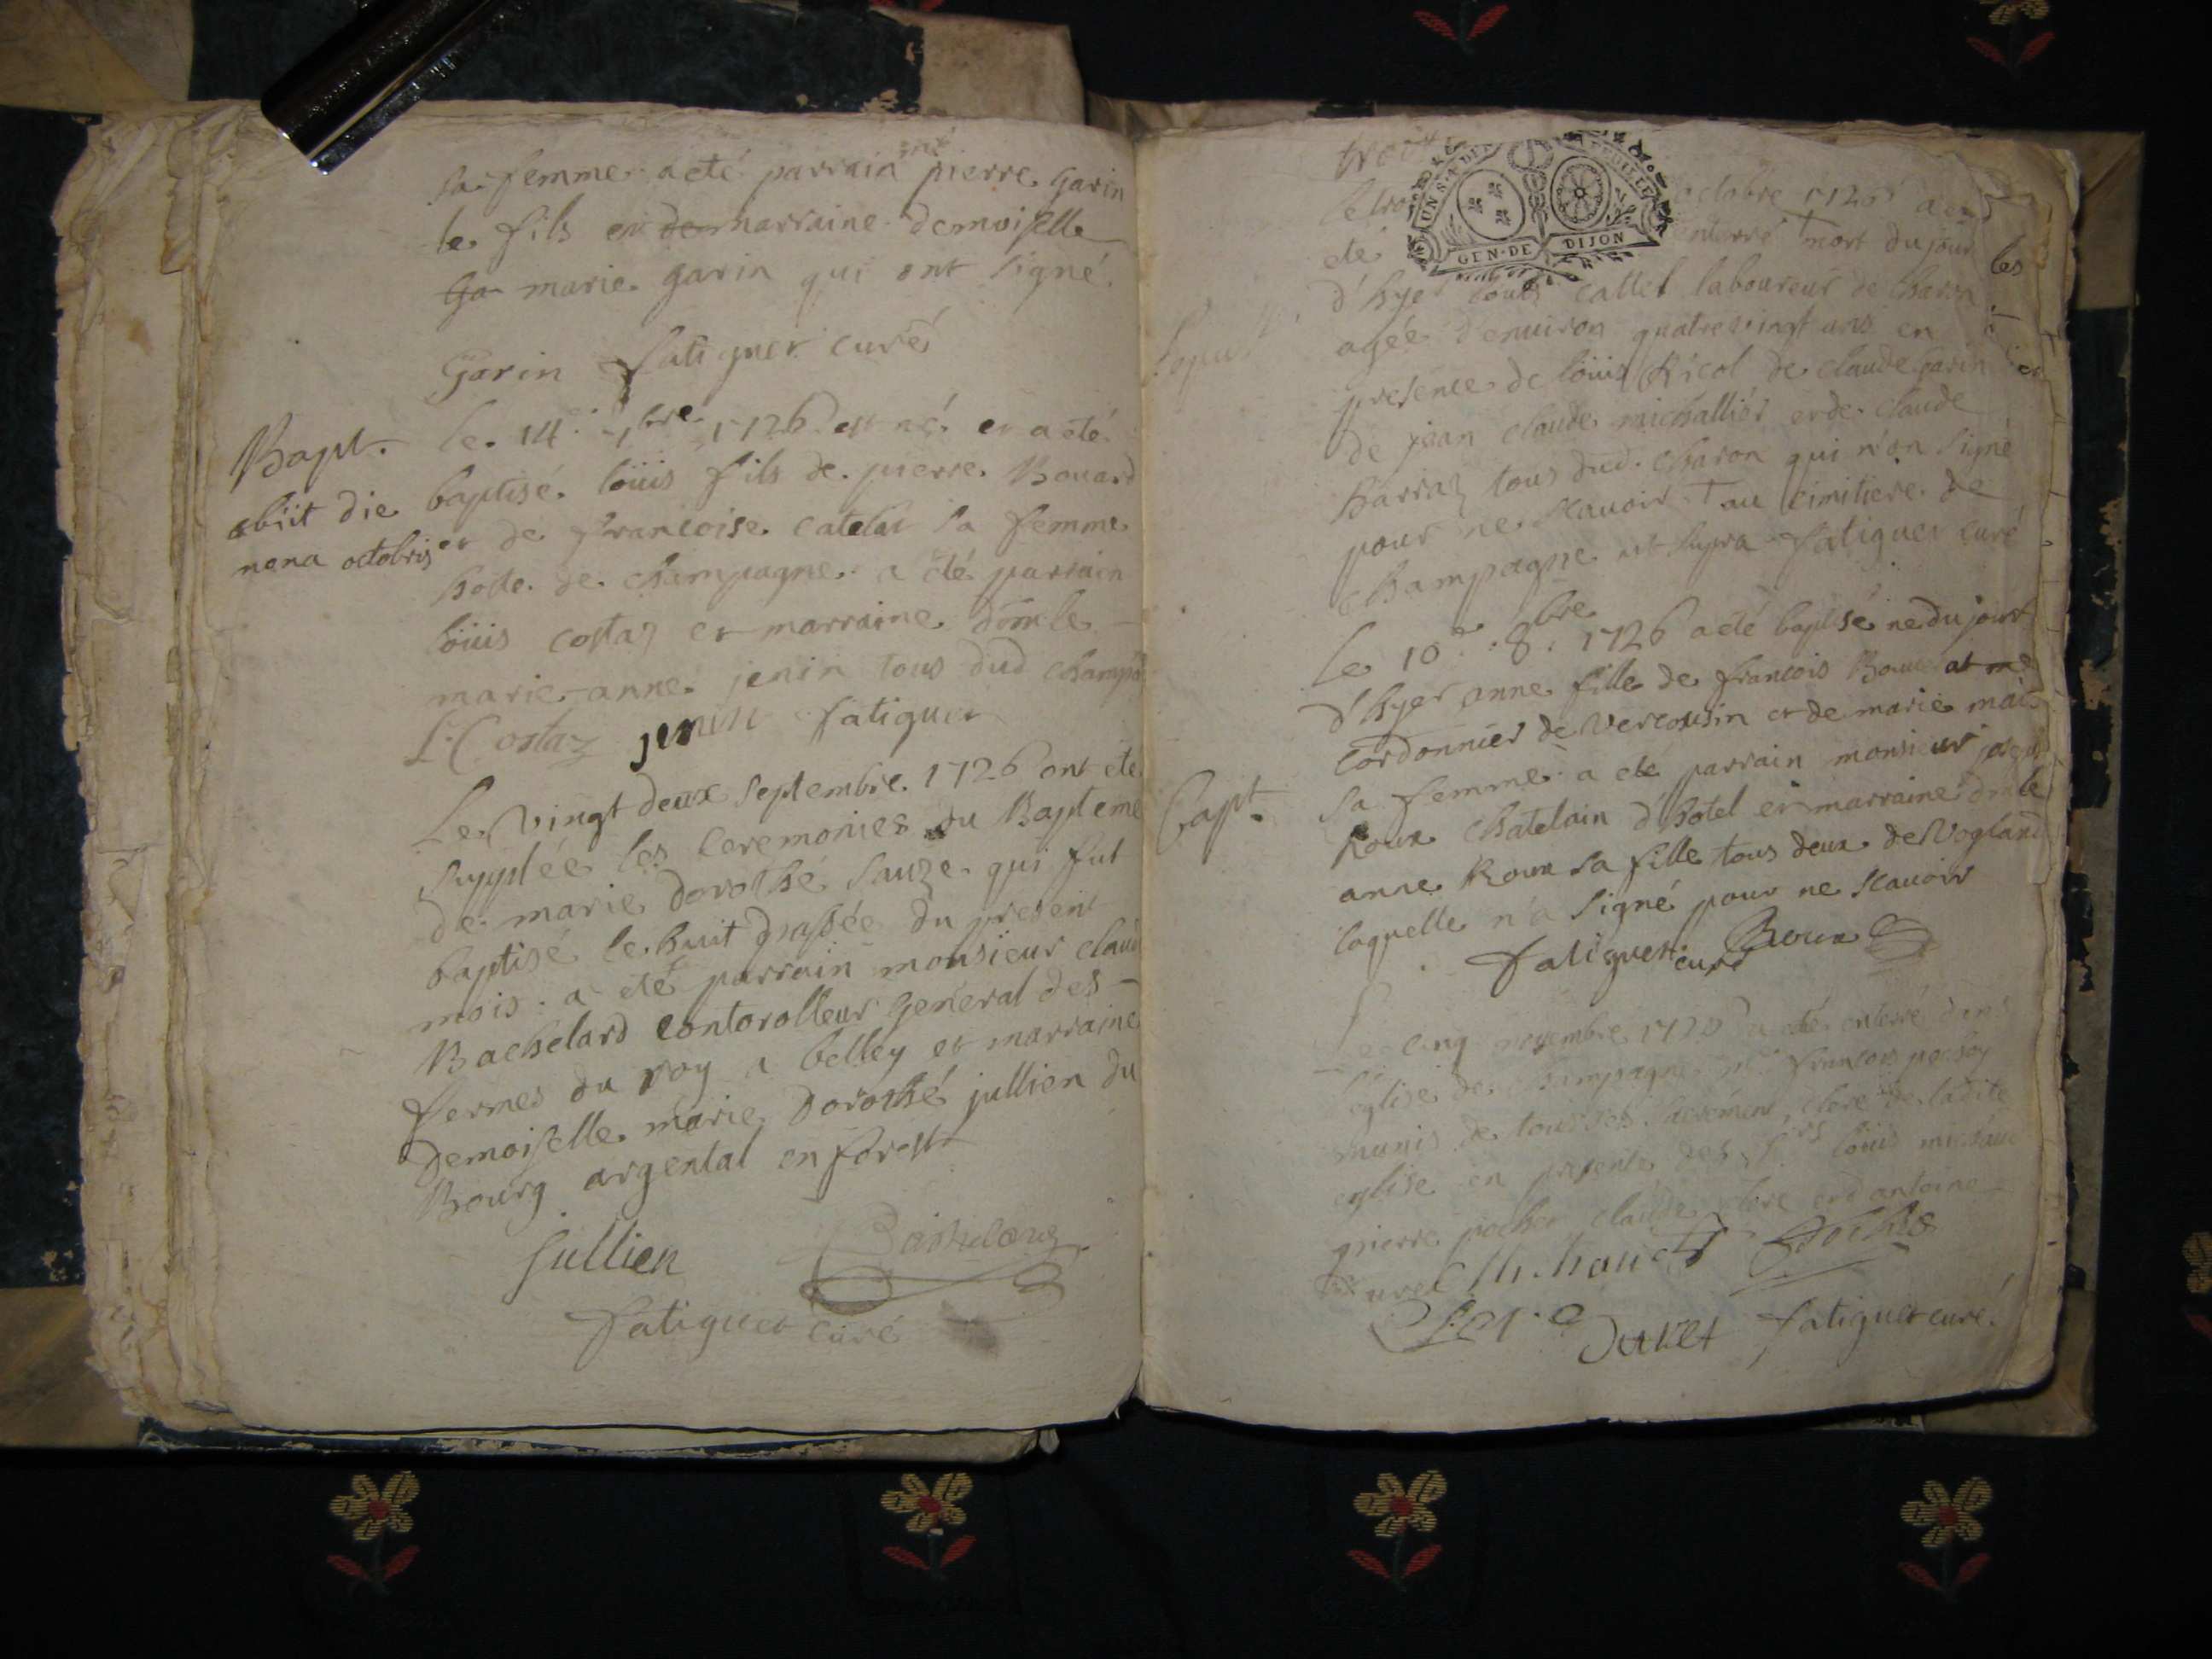 sa femme a eté parrain pierre garin
le fils et marraine demoiselle
marie garin qui ont signé.
Garin fatiguet curé
Bapt. le 14.e 7bre 1726 est né et a eté
obiit die nona octobris
baptisé loüis fils de pierre Bouard
et de francoise catelat sa femme
hotte de champagne a eté parrain
loüis costaz et marraine domle
marie anne jenin tous dud champ
L. Costaz jenin fatiguet
Le vingt deux septembre 1726 ont eté
supplée les ceremonies du Bapteme
de marie dorothé sauze qui fut
baptisé le huit passée du present
mois. a eté parrain monsieur claud
Bachelard contorolleur general des
fermes du roy a belley et marraine
Demoiselle marie Dorothé jullien du
Bourg argental en forest
Jullien Bachelard
fatiguet curé
UN S. 4 DE
GEN. DE DIJON
octobre 1726 a
eté enterré mort du jour
d'hyer louis callet laboureur de charon
agée d'environ quatre vingt ans en
presence de loüis Ricol de claude garin
de jean claude michallier et de claude
Barraz tous dud. charon qui n'on signé
pour ne scavoir au cimitiere de
champagne ut supra fatiguet curé
Le 10.e 8bre 1726 a eté baptisé ne du jour
d'hyer anne fille de francois
cordonnier de Vercousin et de marie
Bapt. sa femme a eté parrain monsieur joseph
Roux chatelain d'hotel et marraine dmle
anne Roux sa fille tous deux de Vogland
laquelle n'a signé pour ne scavoir
fatiguet curé Roux
Le cinq novembre 1726 a eté enterré dans
l'eglise de champagne francois
munis de tous ses sacrement, clerc de ladite
eglise en presence des srs loüis michaud
pierre pochet claude clerc et d'antoine
Michaud Pochet
Clerc Duret fatiguet curé.